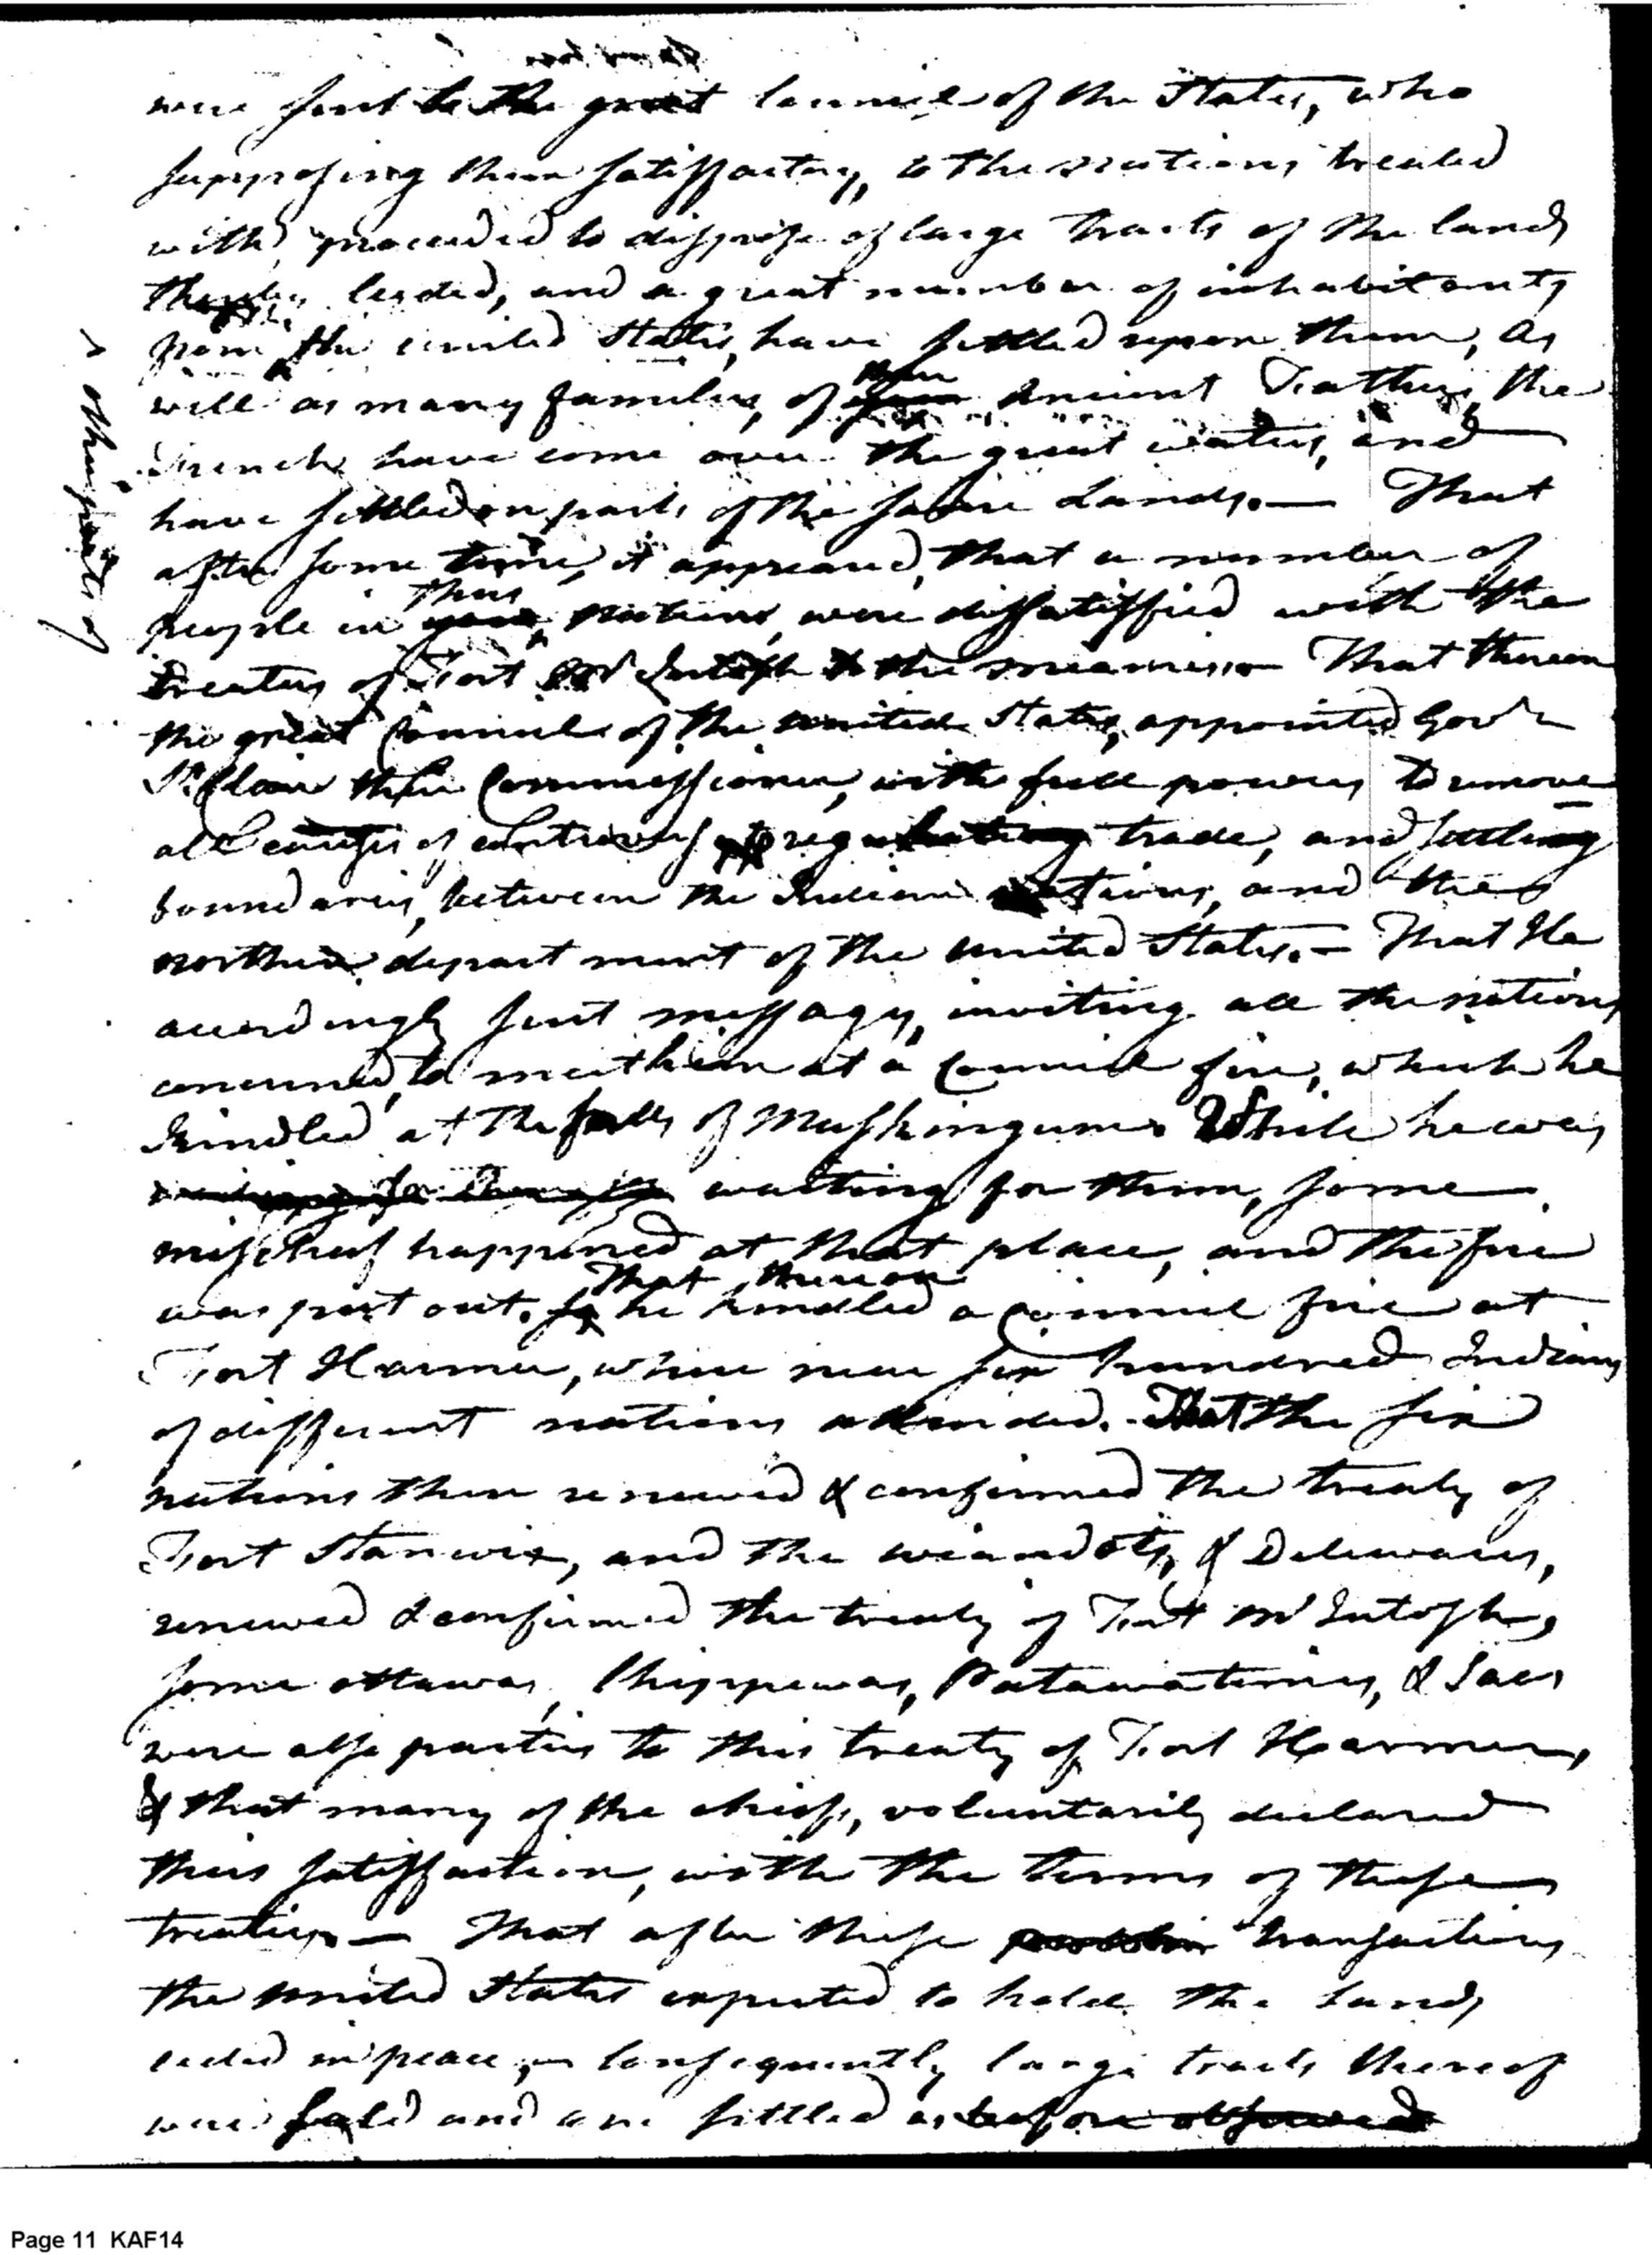 were sent to the great Council of the States, who
supposing them satisfactory, to the nations treated
with, proceeded to dispose of large tracts of the lands
thereby ceded, and a great number of inhabitants
from the united States, have settled upon them, as
other parts of
well as many families, of their ancient Fathers, the
French have come over the great waters, and
have settled on parts of the same Lands.— That
after some time, it appeared, that a number of
people in these nations, were dissatisfied with the
treatys of Fort McIntosh & the meamies— That thereon
the great Council of the united States, appointed Govr
St. Clair their Commissioner, with full powers to remove
all causes of controversy regulating trade, and settling
boundaries, between the Indian nations, and the
northern department of the united States.— That He
accordingly sent messages, inviting all the nations
concerned, to meet him at a Council fire, which he
kindled at the falls of Muskingum. While he was
waiting for them, some
mischief happened at that place, and the fire
was put out. That thereon
he kindled a Council fire at
Fort Harmer, where near six hundred Indians
of different nations attended. That the six
nations then renewed & confirmed the treaty of
Fort Stanwix, and the wiandots, & Delewares,
renewed & confirmed the treaty of Fort McIntosh,
some ottawas, Chippewas, Patawatimies, & Sacs
were also parties to this treaty of Fort Harmer,
& that many of the chiefs, voluntarily declared
their satisfaction, with the terms of these
treaties.— That after these transactions
the united States expected to hold the lands
ceded in peace, consequently large tracts thereof
were sold and are settled as before observed
Page 11 KAF14